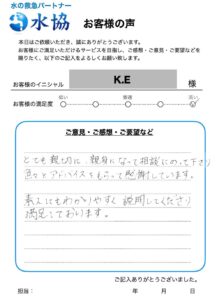 水の救急パートナー
水協 お客様の声
本日はご依頼いただき、誠にありがとうございます。
お客様にご満足いただけるサービスを目指し、ご感想・ご意見・ご要望などを
賜りたく、以下のご記入をよろしくお願い致します。
お客様のイニシャル K.E 様
お客様の満足度 低い 普通 高い
ご意見・ご感想・ご要望など
とても親切に、親身になって相談にのって下さり
色々とアドバイスをもらって感謝しています。
素人にもわかりやすく説明してくださり
満足しております。
ご記入ありがとうございました。
ご担当 年 月 日